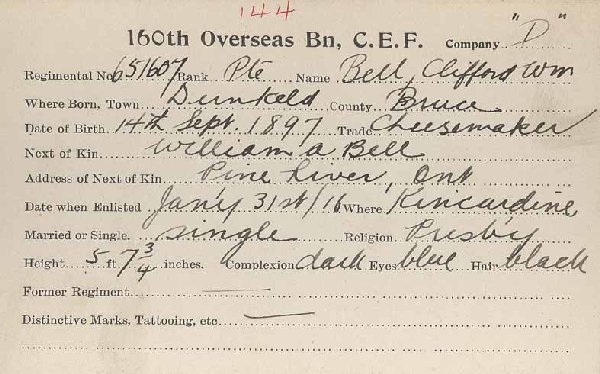 144
160th Overseas Bn, C.E.F. Company "D"
Regimental No. 651607 Rank Pte Name Bell, Clifford Wm
Where Born, Town Dunkeld County Bruce
Date of Birth. 14th Sept. 1897 Trade Cheesemaker
Next of Kin William A Bell
Address of Next of Kin Pine River, Ont
Date when Enlisted Jan'y 31st/16 Where Kincardine
Married or Single. single Religion Presby
Height 5 ft 7 3/4 inches. Complexion dark Eyes blue Hair black
Former Regiment
Distinctive Marks, Tattooing, etc.